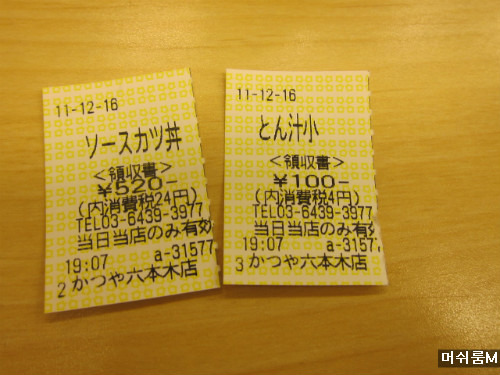 11-12-16
ソースカツ丼
<領収書>
¥520-
(内消費税24円)
TEL03-6439-3977
当日当店のみ有効
19:07 a-31577
2 かつや六本木店
11-12-16
とん汁小
<領収書>
¥100-
(内消費税4円)
TEL03-6439-3977
当日当店のみ有
19:07 a-3157
3 かつや六本木店
머쉬룸M